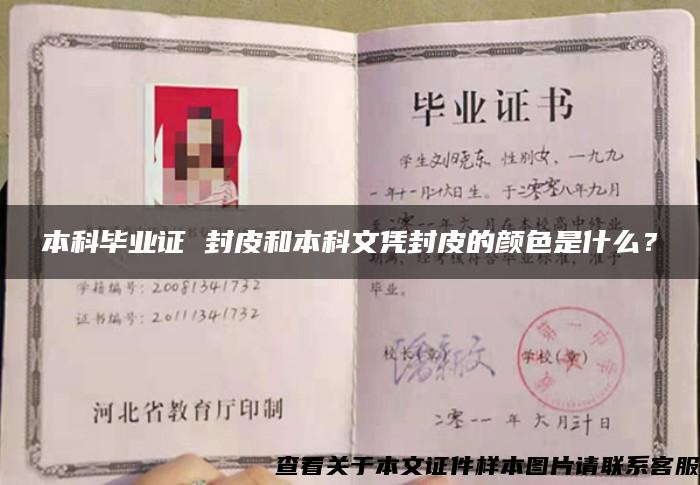 毕业证书
学生刘晓东 性别女、一九九
一年十一月十六日生。于二零零八年九月
至二零一一年六月在本校高中修业
本科毕业证 封皮和本科文凭封皮的颜色是什么？
毕业。
学籍编号：20081341732
证书编号：20111341732
校长(章)
学校(章)
第一中学
河北省教育厅印制
二零一一年六月三十日
查看关于本文证件样本图片请联系客服